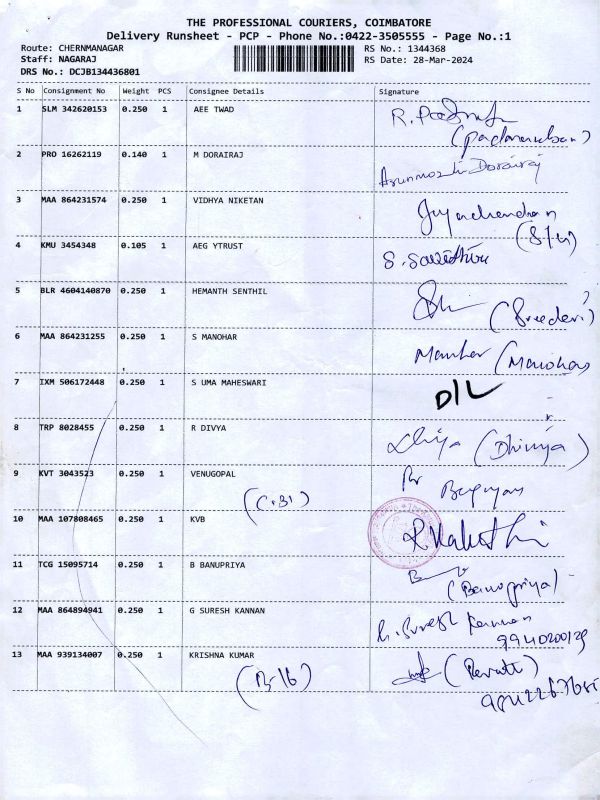 THE PROFESSIONAL COURIERS, COIMBATORE
Delivery Runsheet - PCP - Phone No.:0422-3505555 - Page No.:1
Route: CHERNMANAGAR RS No.: 1344368
Staff: NAGARAJ RS Date: 28-Mar-2024
DRS No.: DCJB134436801
S No Consignment No Weight PCS Consignee Details Signature
1 SLM 342620153 0.250 1 AEE TWAD
2 PRO 16262119 0.140 1 M DORAIRAJ Dorairaj
3 MAA 864231574 0.250 1 VIDHYA NIKETAN Jeyachandran
4 KMU 3454348 0.105 1 AEG YTRUST S. Savithiri
5 BLR 4604140870 0.250 1 HEMANTH SENTHIL (Sreedevi)
6 MAA 864231255 0.250 1 S MANOHAR Manohar (Manohar)
7 IXM 506172448 0.250 1 S UMA MAHESWARI D/L
8 TRP 8028455 0.250 1 R DIVYA Dhivya (Dhivya)
9 KVT 3043523 0.250 1 VENUGOPAL
(C.31)
10 MAA 107808465 0.250 1 KVB
11 TCG 15095714 0.250 1 B BANUPRIYA
(Banupriya)
12 MAA 864894941 0.250 1 G SURESH KANNAN G. Suresh Kannan
9940200129
13 MAA 939134007 0.250 1 KRISHNA KUMAR (Revathi)
(B-16)